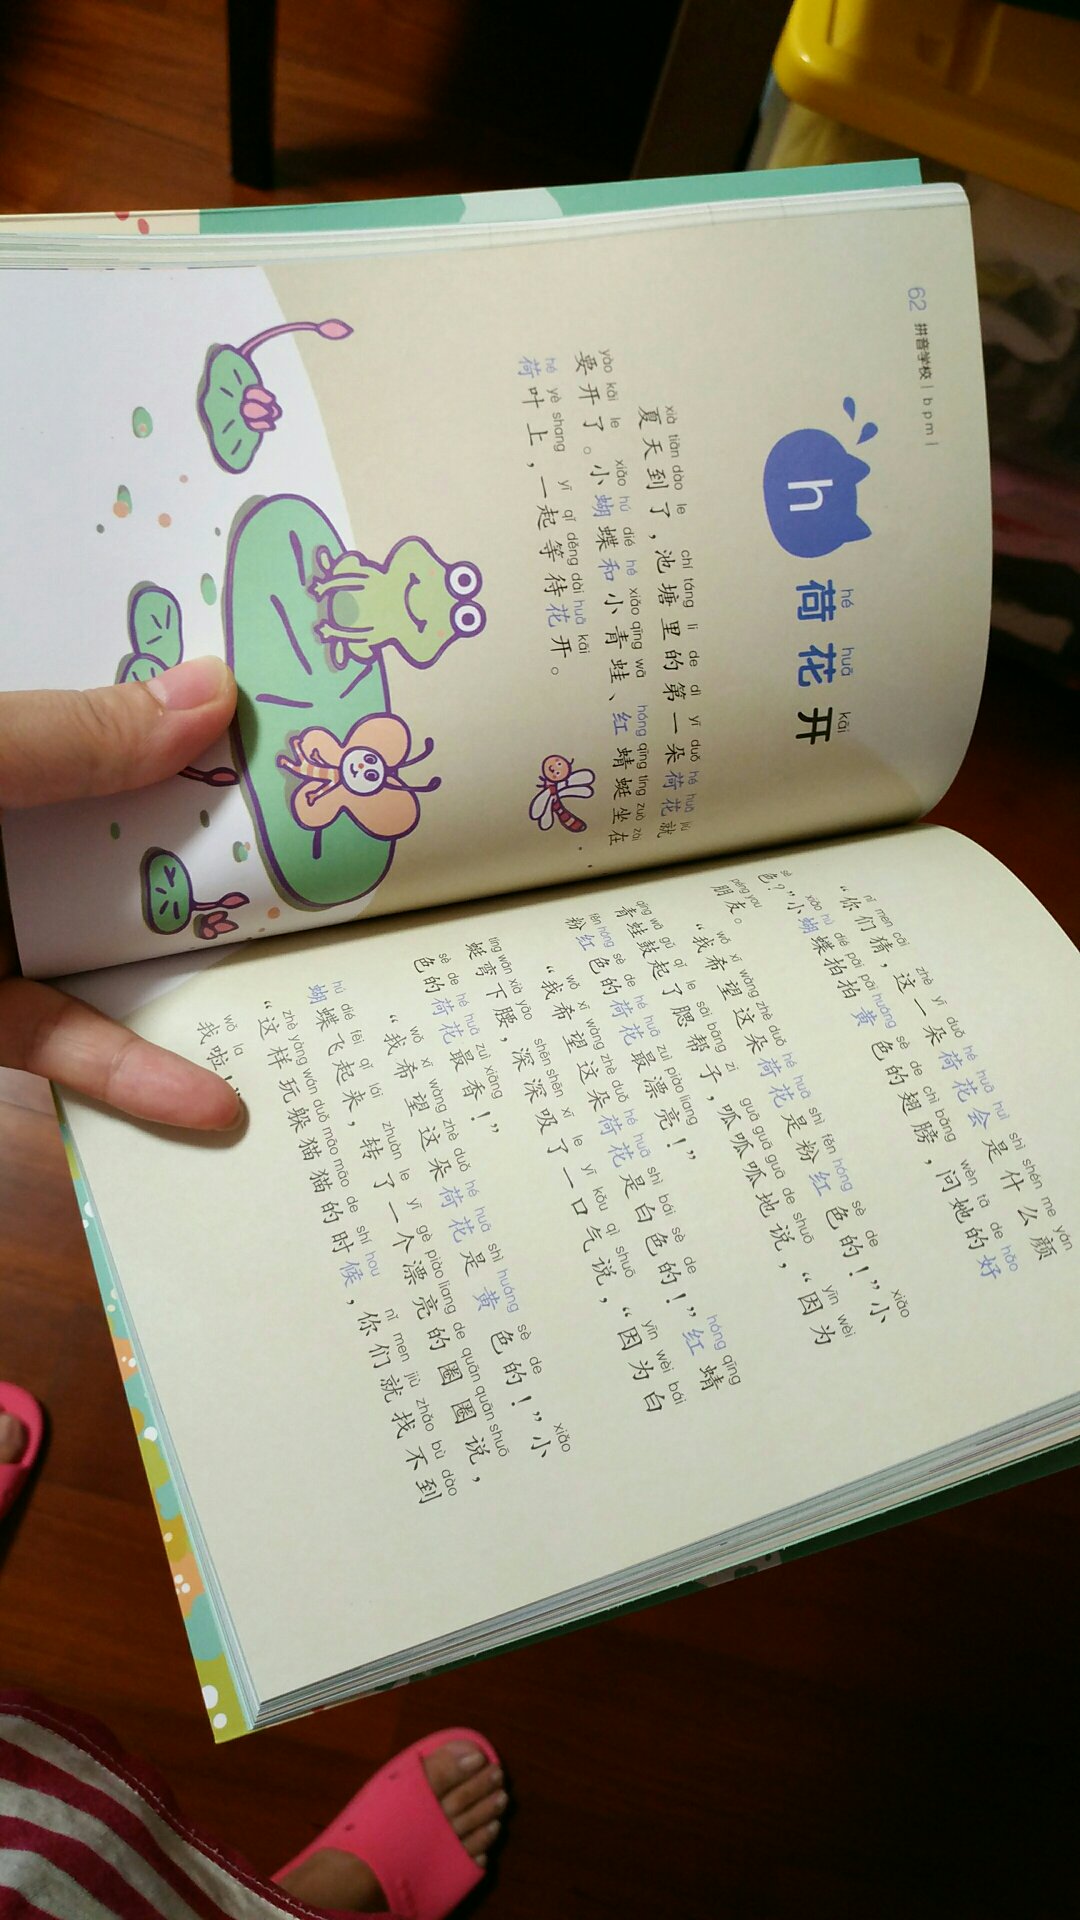 62 拼音学校 | b p m |
h
hé huā kāi
荷花开
xià tiān dào le chí táng li de dì yī duǒ hé huā jiù
夏天到了，池塘里的第一朵荷花就
yào kāi le xiǎo hú dié hé xiǎo qīng wā hóng qīng tíng zuò zài
要开了。小蝴蝶和小青蛙、红蜻蜓坐在
hé yè shang yī qǐ děng dài huā kāi
荷叶上，一起等待花开。
nǐ men cāi zhè yī duǒ hé huā huì shì shén me yán
“你们猜，这一朵荷花会是什么颜
sè xiǎo hú dié pāi pāi huáng sè de chì bǎng wèn tā de hǎo
色？”小蝴蝶拍拍黄色的翅膀，问她的好
péng you
朋友。
wǒ xī wàng zhè duǒ hé huā shì fěn hóng sè de xiǎo
“我希望这朵荷花是粉红色的！”小
qīng wā gǔ qǐ le sāi bāng zi guā guā guā de shuō yīn wèi
青蛙鼓起了腮帮子，呱呱呱地说，“因为
fěn hóng sè de hé huā zuì piào liang
粉红色的荷花最漂亮！”
wǒ xī wàng zhè duǒ hé huā shì bái sè de hóng qīng
“我希望这朵荷花是白色的！”红蜻
tíng wān xià yāo shēn shēn xī le yī kǒu qì shuō yīn wèi bái
蜓弯下腰，深深吸了一口气说，“因为白
sè de hé huā zuì xiāng
色的荷花最香！”
wǒ xī wàng zhè duǒ hé huā shì huáng sè de xiǎo
“我希望这朵荷花是黄色的！”小
hú dié fēi qǐ lái zhuàn le yī gè piào liang de quān quān shuō
蝴蝶飞起来，转了一个漂亮的圈圈说，
zhè yàng wán duǒ māo māo de shí hou nǐ men jiù zhǎo bù dào
“这样玩躲猫猫的时候，你们就找不到
wǒ la
我啦！”